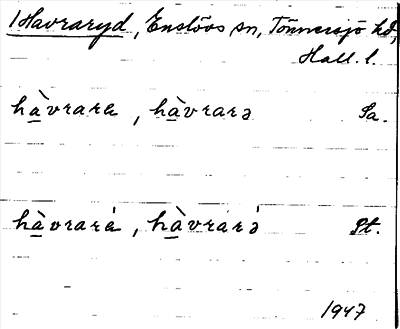 1 Havraryd, Enslövs sn, Tönnersjö hd,
Hall. l.
hàvrarɛ, hàvrarə Sa.
hàvrarɛ́, hàvrarə́ St.
1947